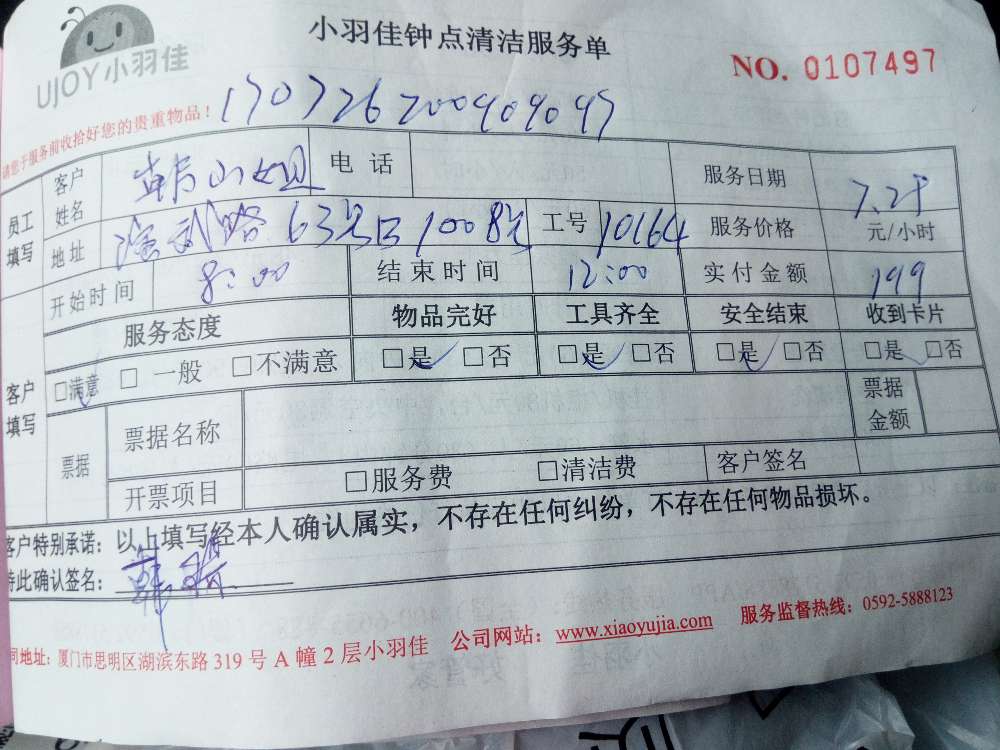 UJOY小羽佳
小羽佳钟点清洁服务单
NO. 0107497
请您于服务前收拾好您的贵重物品！
170726200909097
员工填写 客户姓名 韩小姐 电话 服务日期
地址 63号 1008号 工号 10164 服务价格 元/小时
开始时间 8:00 结束时间 12:00 实付金额 199
服务态度 物品完好 工具齐全 安全结束 收到卡片
客户填写 □满意 □一般 □不满意 □是 □否 □是 □否 □是 □否 □是 □否
票据 票据名称 票据金额
开票项目 □服务费 □清洁费 客户签名
客户特别承诺：以上填写经本人确认属实，不存在任何纠纷，不存在任何物品损坏。
特此确认签名：
司地址：厦门市思明区湖滨东路 319 号 A 幢 2 层小羽佳 公司网站：www.xiaoyujia.com 服务监督热线：0592-5888123